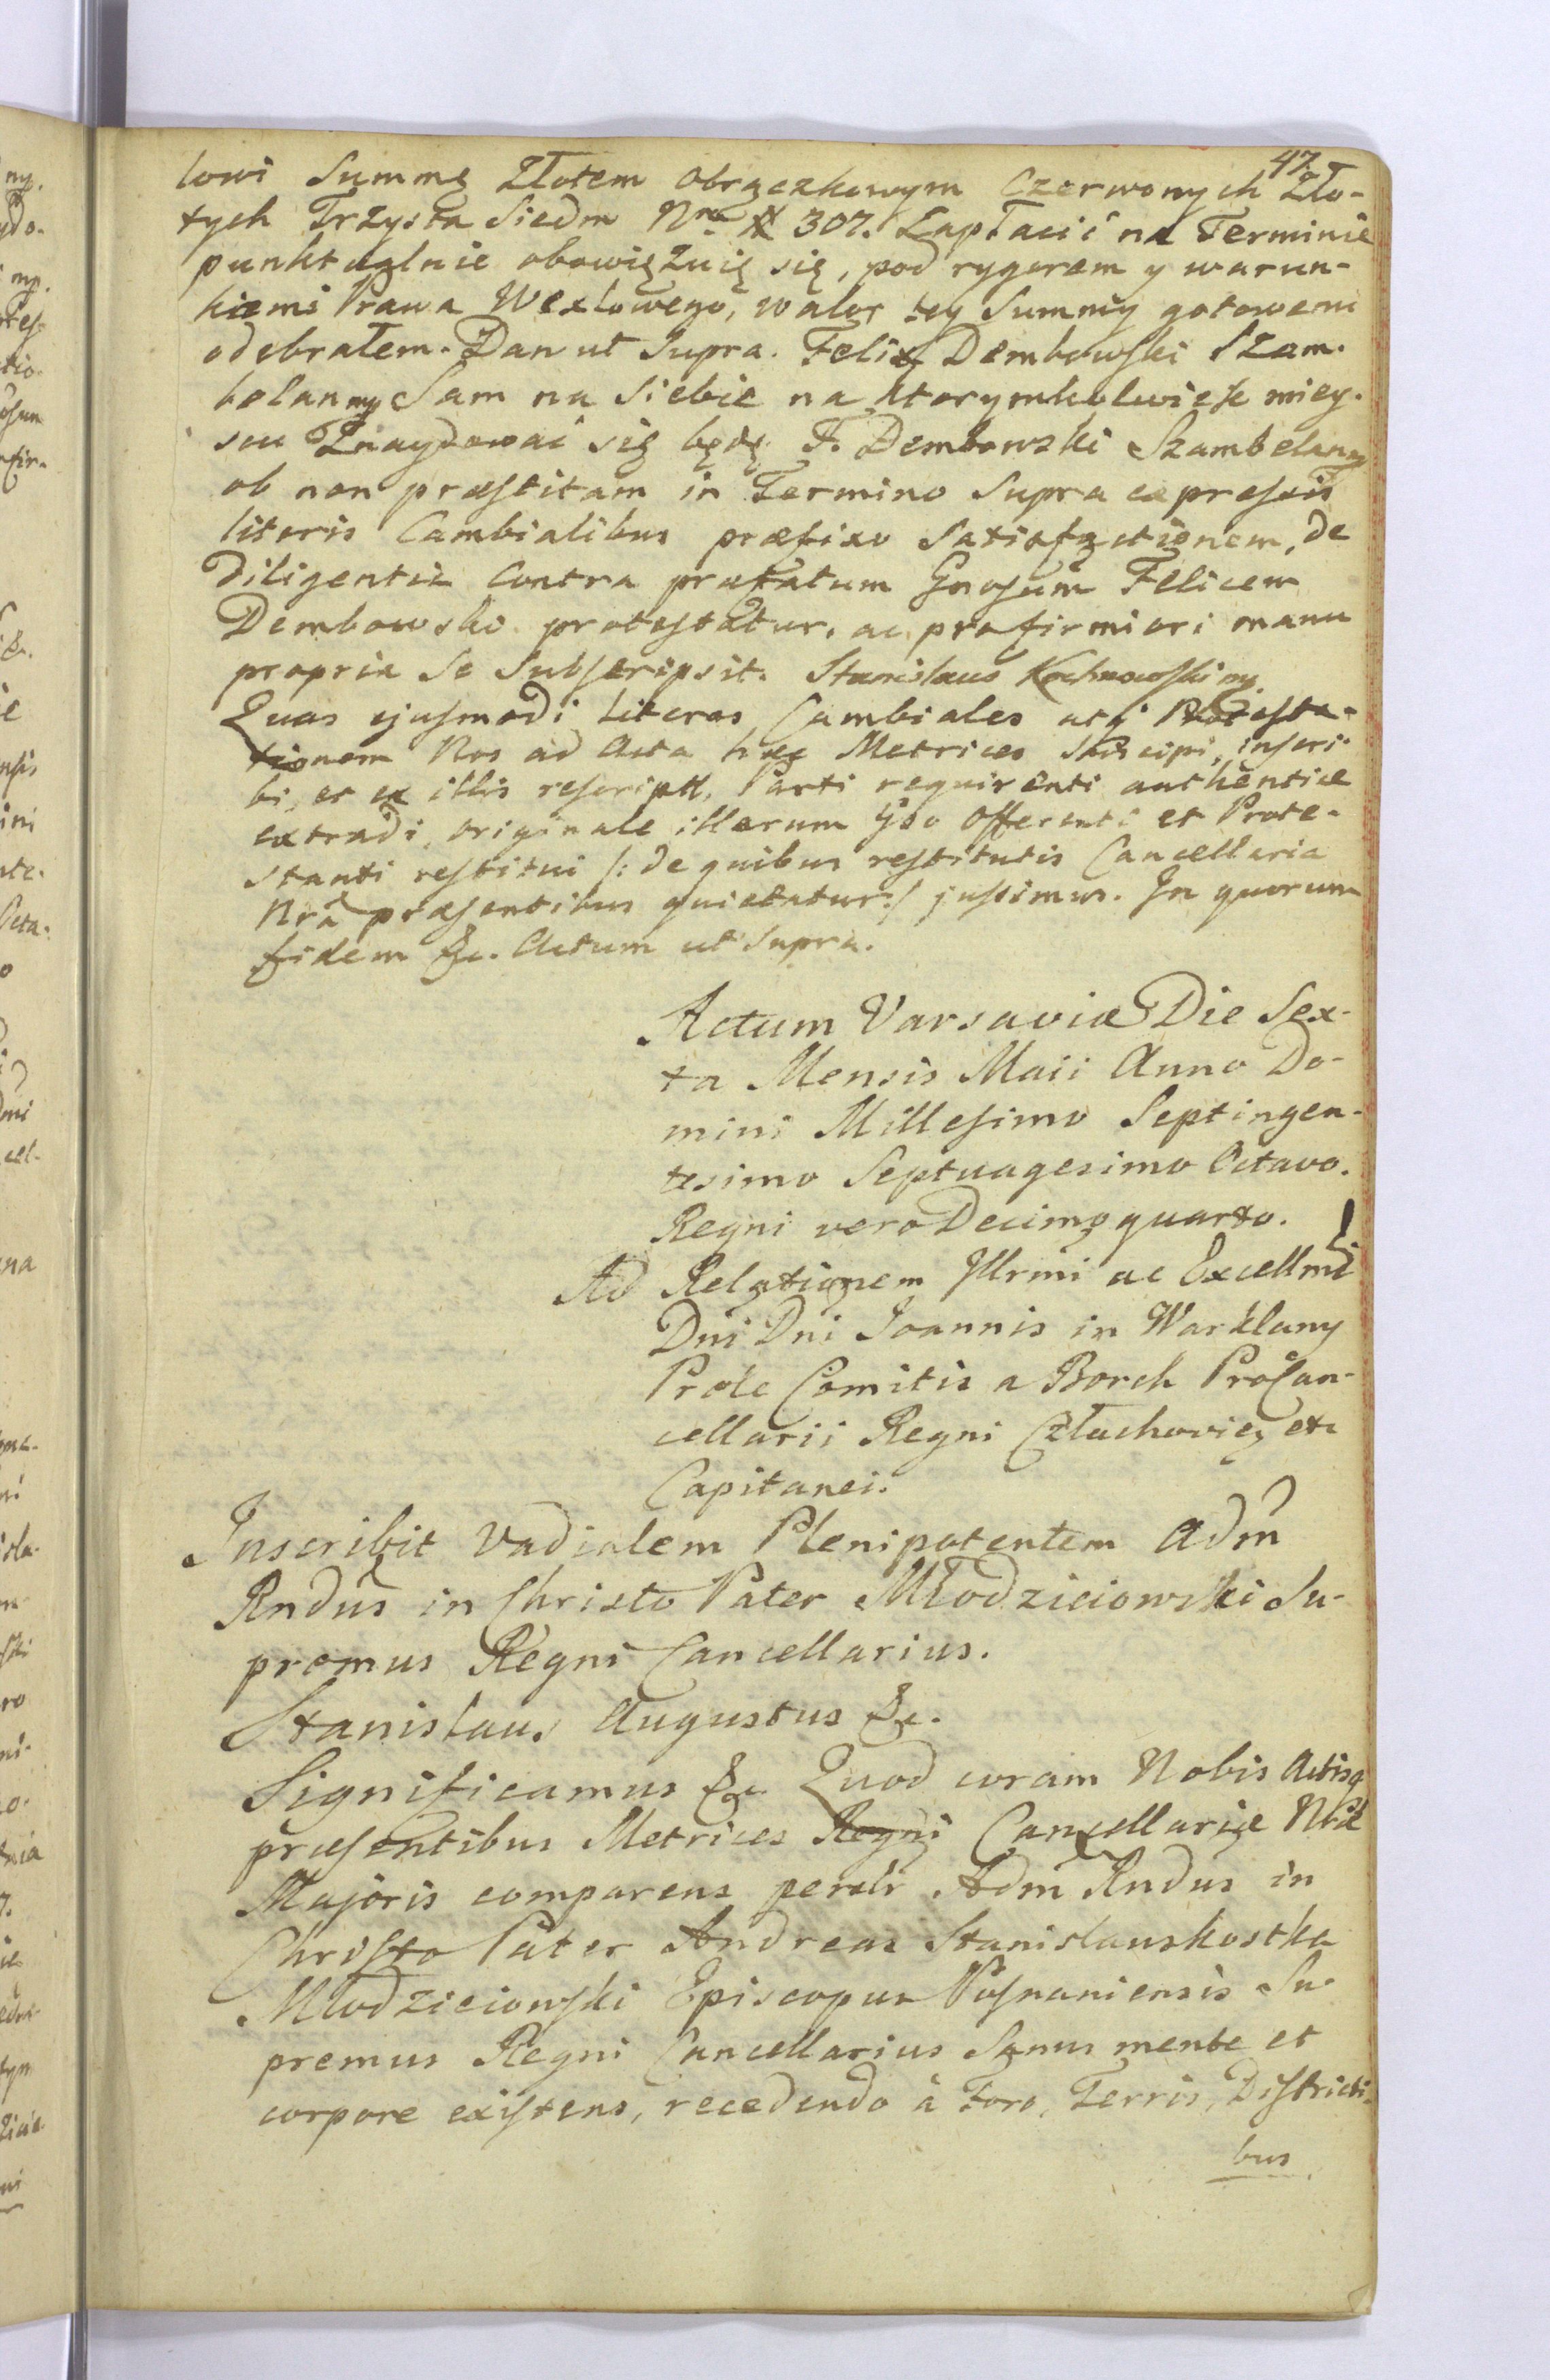 47.
lowi Summę Złotem obrączkowym Czerwonych Zło-
tych Trzysta Siedm Nro # 307. Zapłacić na Terminie
punktualnie obowiązuię się, pod rygorem y warun-
kiemi Prawa Wexlowego, walor tey Summy gotowemi
odebrałem. Dan ut Supra. Felix Dembowski Szam-
belan mp Sam na Siebie na ktorymkolwiek miey-
scu Znaydować się będę F. Dembowski Szambelan mp
ob non præstitam in Termino Supra expressis
literis Cambialibus præfixo Satisfactionem, de
Diligentia Contra præfatum Gnosum Felicem
Dembowski protestatur, ac pro firmiori manu
propria Se Subscripsit. Stanislaus Kochnowski mp
Quas ejusmodi Literas Cambiales atq Protesta-
tionem Nos ad Acta hæc Metrices Suscipi, inscri-
bi, et ex illis rescriptt, Parti requirenti authentice
extradi, originale illarum Gso Offerenti et Prote-
stanti restitui /: de quibus restitutis Cancellaria
Nra præsentibus quietatur :/ jussimus. In quorum
fidem &c. Actum ut Supra.
Actum Varsaviæ Die Sex-
ta Mensis Maii Anno Do-
mini Millesimo Septingen-
tesimo Septuagesimo Octavo.
Regni vero Decimo quarto.
Ad Relationem Illrmi ac Excellmi
Dni Dni Joannis in Warklany
Prele Comitis a Borch ProCan-
cellarii Regni Człuchovien etc
Capitanei.
Inscribit Vadialem Plenipotentem Adm
Rndus in Christo Pater Młodzieiowski Su-
premus Regni Cancellarius.
Stanislaus Augustus &c.
Significamus &c. Quod coram Nobis Actisq
præsentibus Metrices Regni Cancellariæ Nræ
Majoris comparens perslr Adm Rndus in
Christo Pater Andreas Stanislaus Kostka
Młodzieiowski Episcopus Posnaniensis Su-
premus Regni Cancellarius Sanus mente et
corpore existens, recedendo à Foro, Terris, Districti-
bus